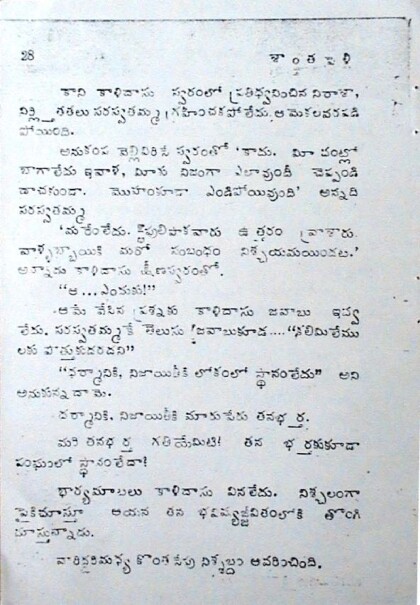 28 శాంతవళి
కాని కాళిదాసు స్వరంలో ప్రతిధ్వనించిన నిరాశా,
నిర్లిప్తతలు సరస్వతమ్మ గ్రహించకపోలేదు. ఆమెకలవరపడి
పోయింది.
అనుకంప వెల్లివిరిసే స్వరంతో 'కాదు. మీ వంట్లో
బాగాలేదు ఇవాళ, మీకు నిజంగా ఎలావుందీ చెప్పండి
దాచకుండా. మొహంకూడా ఎండిపోయివుంది' అన్నది
సరస్వతమ్మ
'మరేంలేదు. పులిపాకవారు ఉత్తరం వ్రాశారు.
వాళ్ళబ్బాయికి మరో సంబంధం నిశ్చయమయిందట.'
అన్నాడు కాళిదాసు క్షీణస్వరంతో.
"ఆ...ఎందుకు!"
ఆమె వేసిన ప్రశ్నకు కాళిదాసు జవాబు ఇవ్వ
లేదు. సరస్వతమ్మకే తెలుసు జవాబుకూడ...."కలిమిలేము
లకు పొత్తుకుదరదని"
"ధర్మానికి, నిజాయితీకి లోకంలో స్థానంలేదు" అని
అనుకున్నదామె.
ధర్మానికి, నిజాయితీకి మారుపేరు తనభర్త.
మరి తనభర్త గతియేమిటి! తన భర్తకుకూడా
సంఘంలో స్థానంలేదా!
భార్యమాటలు కాళిదాసు వినలేదు. నిశ్చలంగా
పైకిచూస్తూ ఆయన తన భవిష్యజ్జీవితంలోకి తొంగి
చూస్తున్నాడు.
వారిద్దరిమధ్య కొంతసేపు నిశ్శబ్దం ఆవరించింది.